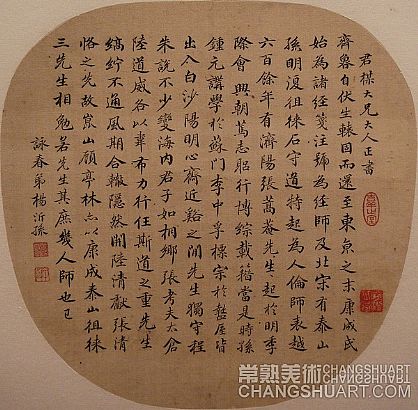 君楳大兄大人正書
齊魯自伏生轅固而還至東京之末康成氏
始為諸經箋注號為經師及北宋有泰山
孫明復徂徠石守道特起為人倫師表越
六百餘年有濟陽張蒿菴先生起於明季
際會興朝篤志躬行博綜載籍當是時孫
鍾元講學於蘇門李中孚標宗於盩厔皆
出入白沙陽明心齋近谿之間先生獨守程
朱說不少變海內君子如桐鄉張考夫太倉
陸道威各以韋布力行任斯道之重先生
縞紵不通風期合轍隱然開陸清獻張清
恪之先故崑山顧亭林亦以康成泰山徂徠
三先生相勉若先生其庶幾人師也已
詠春弟楊沂孫
常熟美術
CHANGSHUART.COM